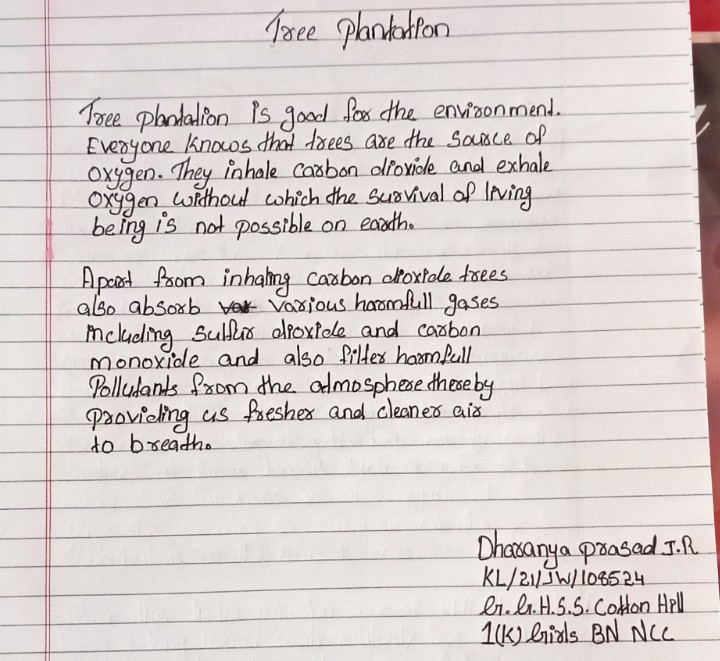 Tree Plantation
Tree plantation is good for the environment.
Everyone knows that trees are the source of
oxygen. They inhale carbon dioxide and exhale
oxygen without which the survival of living
being is not possible on earth.
Apart from inhaling carbon dioxide trees
also absorb various harmfull gases
including sulfur dioxide and carbon
monoxide and also filter harmfull
Pollutants from the atmosphere thereby
providing us fresher and cleaner air
to breath.
Dharanya prasad J.R
KL/21/JW/108524
G.G.H.S.S. Cotton Hill
1(K) Girls BN NCC